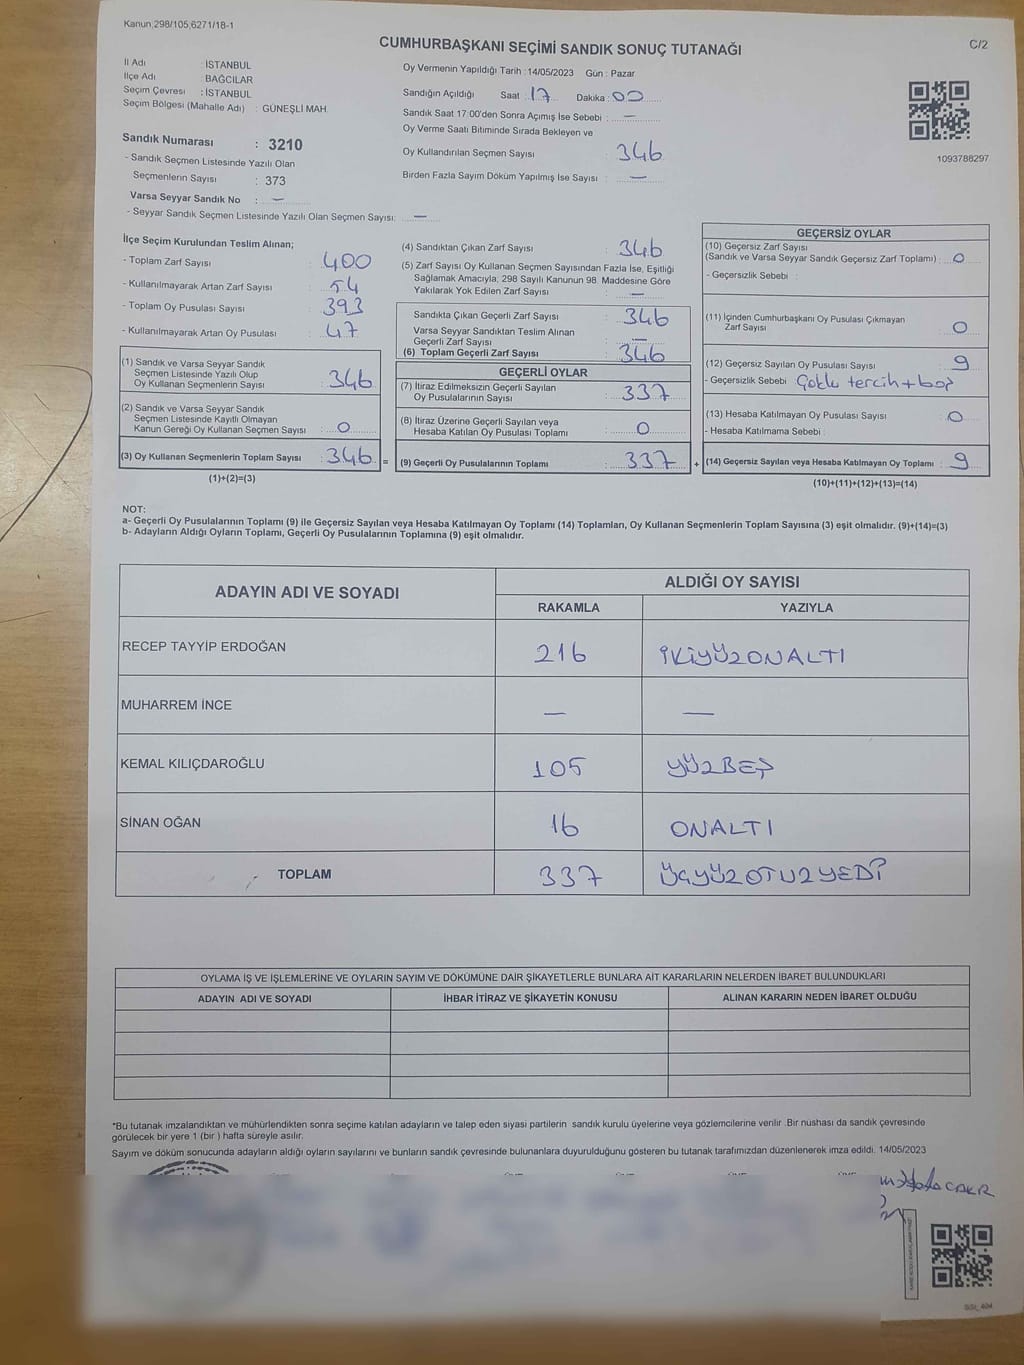 Kanun;298/105,6271/18-1
C/2
CUMHURBAŞKANI SEÇİMİ SANDIK SONUÇ TUTANAĞI
İl Adı : İSTANBUL
İlçe Adı : BAĞCILAR
Seçim Çevresi : İSTANBUL
Seçim Bölgesi (Mahalle Adı) : GÜNEŞLİ MAH.
Oy Vermenin Yapıldığı Tarih :14/05/2023 Gün : Pazar
Sandığın Açıldığı Saat : 17 Dakika : 00
Sandık Saat 17:00'den Sonra Açımış İse Sebebi : —
Oy Verme Saati Bitiminde Sırada Bekleyen ve
Oy Kullandırılan Seçmen Sayısı : 346
Birden Fazla Sayım Döküm Yapılmış İse Sayısı : —
1093788297
Sandık Numarası : 3210
- Sandık Seçmen Listesinde Yazılı Olan
Seçmenlerin Sayısı : 373
Varsa Seyyar Sandık No : —
- Seyyar Sandık Seçmen Listesinde Yazılı Olan Seçmen Sayısı: —
İlçe Seçim Kurulundan Teslim Alınan;
- Toplam Zarf Sayısı : 400
- Kullanılmayarak Artan Zarf Sayısı : 54
- Toplam Oy Pusulası Sayısı : 393
- Kullanılmayarak Artan Oy Pusulası : 47
(1) Sandık ve Varsa Seyyar Sandık
Seçmen Listesinde Yazılı Olup
Oy Kullanan Seçmenlerin Sayısı : 346
(2) Sandık ve Varsa Seyyar Sandık
Seçmen Listesinde Kayıtlı Olmayan
Kanun Gereği Oy Kullanan Seçmen Sayısı : 0
(3) Oy Kullanan Seçmenlerin Toplam Sayısı : 346 =
(1)+(2)=(3)
(4) Sandıktan Çıkan Zarf Sayısı : 346
(5) Zarf Sayısı Oy Kullanan Seçmen Sayısından Fazla İse, Eşitliği
Sağlamak Amacıyla, 298 Sayılı Kanunun 98. Maddesine Göre
Yakılarak Yok Edilen Zarf Sayısı : —
Sandıkta Çıkan Geçerli Zarf Sayısı : 346
Varsa Seyyar Sandıktan Teslim Alınan
Geçerli Zarf Sayısı : —
(6) Toplam Geçerli Zarf Sayısı : 346
GEÇERLİ OYLAR
(7) İtiraz Edilmeksizin Geçerli Sayılan
Oy Pusulalarının Sayısı : 337
(8) İtiraz Üzerine Geçerli Sayılan veya
Hesaba Katılan Oy Pusulası Toplamı : 0
(9) Geçerli Oy Pusulalarının Toplamı : 337 +
GEÇERSİZ OYLAR
(10) Geçersiz Zarf Sayısı
(Sandık ve Varsa Seyyar Sandık Geçersiz Zarf Toplamı) : 0
- Geçersizlik Sebebi :
(11) İçinden Cumhurbaşkanı Oy Pusulası Çıkmayan
Zarf Sayısı : 0
(12) Geçersiz Sayılan Oy Pusulası Sayısı : 9
- Geçersizlik Sebebi : Çoklu tercih + boş
(13) Hesaba Katılmayan Oy Pusulası Sayısı : 0
- Hesaba Katılmama Sebebi :
(14) Geçersiz Sayılan veya Hesaba Katılmayan Oy Toplamı : 9
(10)+(11)+(12)+(13)=(14)
NOT:
a- Geçerli Oy Pusulalarının Toplamı (9) ile Geçersiz Sayılan veya Hesaba Katılmayan Oy Toplamı (14) Toplamları, Oy Kullanan Seçmenlerin Toplam Sayısına (3) eşit olmalıdır. (9)+(14)=(3)
b- Adayların Aldığı Oyların Toplamı, Geçerli Oy Pusulalarının Toplamına (9) eşit olmalıdır.
ADAYIN ADI VE SOYADI ALDIĞI OY SAYISI
RAKAMLA YAZIYLA
RECEP TAYYİP ERDOĞAN 216 İKİYÜZONALTI
MUHARREM İNCE — —
KEMAL KILIÇDAROĞLU 105 YÜZBEŞ
SİNAN OĞAN 16 ONALTI
TOPLAM 337 ÜÇYÜZOTUZYEDİ
OYLAMA İŞ VE İŞLEMLERİNE VE OYLARIN SAYIM VE DÖKÜMÜNE DAİR ŞİKAYETLERLE BUNLARA AİT KARARLARIN NELERDEN İBARET BULUNDUKLARI
ADAYIN ADI VE SOYADI İHBAR İTİRAZ VE ŞİKAYETİN KONUSU ALINAN KARARIN NEDEN İBARET OLDUĞU
*Bu tutanak imzalandıktan ve mühürlendikten sonra seçime katılan adayların ve talep eden siyasi partilerin sandık kurulu üyelerine veya gözlemcilerine verilir .Bir nüshası da sandık çevresinde
görülecek bir yere 1 (bir ) hafta süreyle asılır.
Sayım ve döküm sonucunda adayların aldığı oyların sayılarını ve bunların sandık çevresinde bulunanlara duyurulduğunu gösteren bu tutanak tarafımızdan düzenlenerek imza edildi. 14/05/2023